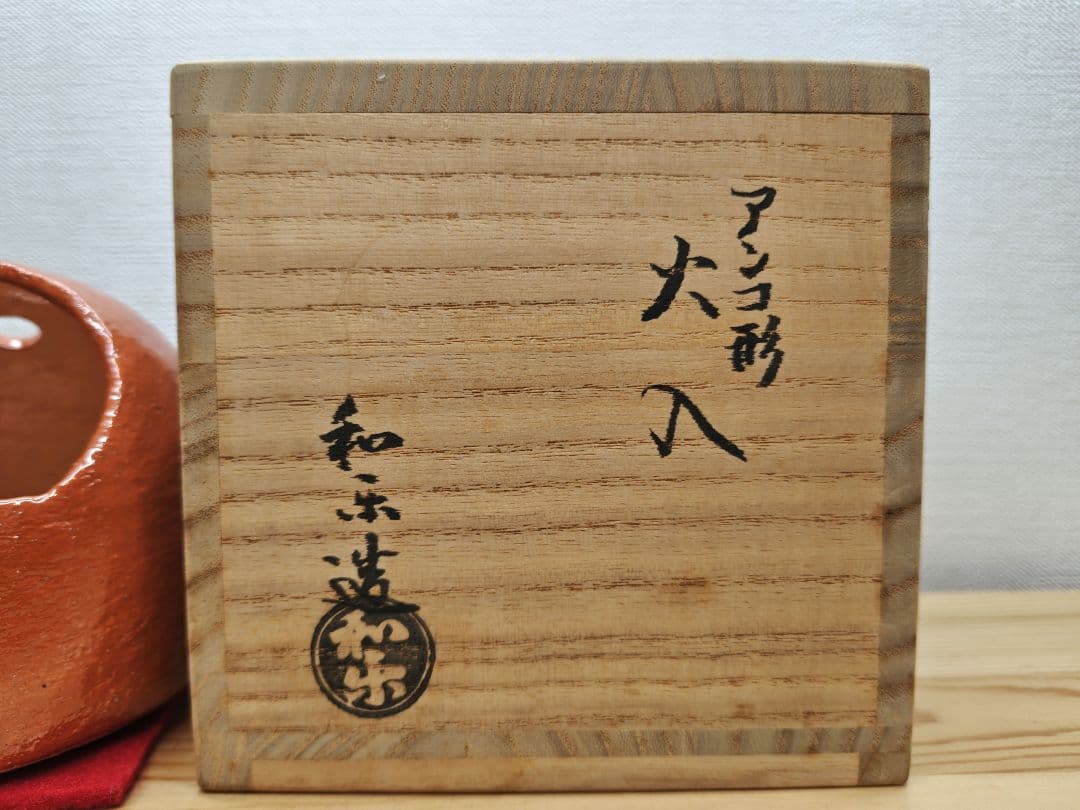 アンコ形
火入
和楽造
和楽